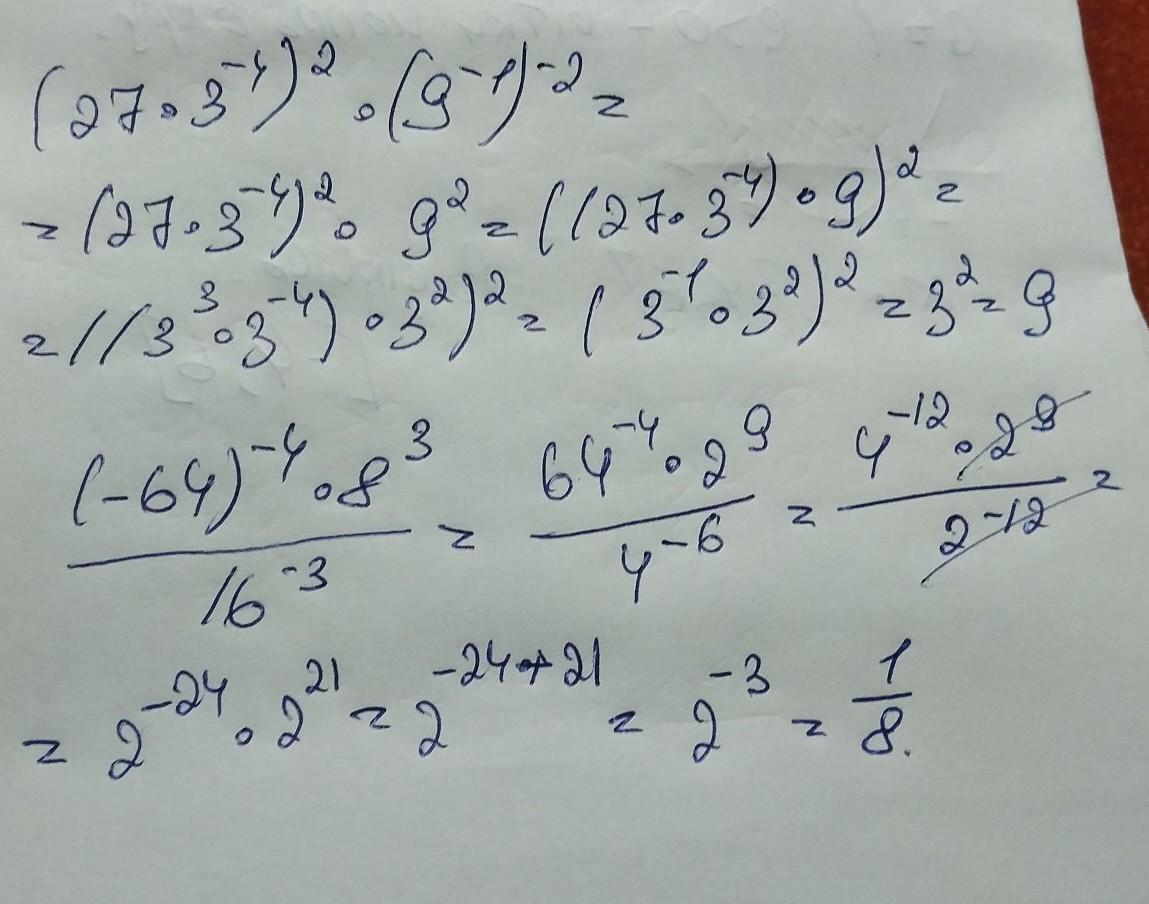 (27·3⁻⁴)²·(9⁻¹)⁻²=
=(27·3⁻⁴)²·9²=((27·3⁻⁴)·9)²=
=((3³·3⁻⁴)·3²)²=(3⁻¹·3²)²=3²=9
(-64)⁻⁴·8³/16⁻³=64⁻⁴·2⁹/4⁻⁶=4⁻¹²·2⁹/2⁻¹²=
=2⁻²⁴·2²¹=2⁻²⁴⁺²¹=2⁻³=1/8.